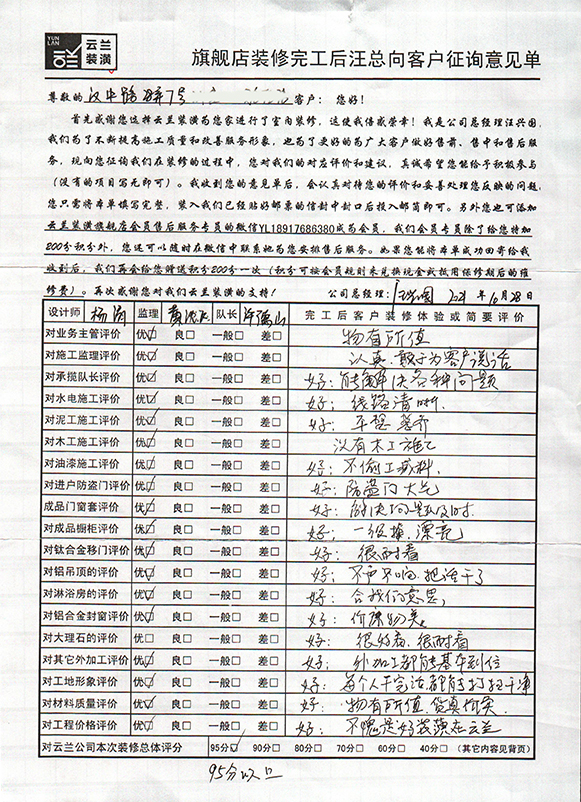 YUN LAN
云兰装潢
旗舰店装修完工后汪总向客户征询意见单
尊敬的 汉中路 7号 客户: 您好!
首先感谢您选择云兰装潢为您家进行了室内装修,这使我倍感荣幸!我是公司总经理汪兴国,
我们为了不断提高施工质量和改善服务形象,也为了更好的为广大客户做好售前、售中和售后服
务,现向您征询我们在装修的过程中,您对我们的对应评价和建议,真诚希望您能给予积极参与
(没有的项目写无即可)。我收到您的意见单后,会认真对待您的评价和妥善处理您反映的问题,
您只需将本单填写完整,装入我们已经贴好邮票的信封中封口后投入邮筒即可。另外您也可添加
云兰装潢旗舰店会员售后服务专员的微信YL18917686380成为会员,我们会员专员除了给您特加
200分积分外,您还可以随时在微信中联系她为您安排售后服务。如果您能将本单成功回寄给我
收到后,我们再会给您赠送积分200分一次(积分可按会员规则来兑换现金或抵用保修期后的维
修费)。再次感谢您对我们云兰装潢的支持! 公司总经理: 2021 年 10月 28日
设计师 杨 监理 黄 队长 许 山 完工后客户装修体验或简要评价
对业务主管评价 优☑ 良□ 一般□ 差□ 物有所值
对施工监理评价 优☑ 良□ 一般□ 差□ 认真.敢于为客户说话
对承揽队长评价 优☑ 良□ 一般□ 差□ 好:能解决各种问题
对水电施工评价 优☑ 良□ 一般□ 差□ 好:线路清晰.
对泥工施工评价 优☑ 良□ 一般□ 差□ 好:平整
对木工施工评价 优☑ 良□ 一般□ 差□ 没有木工施工
对油漆施工评价 优☑ 良□ 一般□ 差□ 好:不偷工减料.
对进户防盗门评价 优☑ 良□ 一般□ 差□ 好:防盗门大气
成品门窗套评价 优☑ 良□ 一般□ 差□ 好:解决问题及时.
对成品橱柜评价 优☑ 良□ 一般□ 差□ 好:一级棒,漂亮
对钛合金移门评价 优☑ 良□ 一般□ 差□ 好:很耐看
对铝吊顶的评价 优☑ 良□ 一般□ 差□ 好:不声不响.把活干了
对淋浴房的评价 优☑ 良□ 一般□ 差□ 好:合我们意思,
对铝合金封窗评价 优☑ 良□ 一般□ 差□ 好:价廉物美.
对大理石的评价 优□ 良□ 一般□ 差□ 好:很好看.很耐看
对其它外加工评价 优☑ 良□ 一般□ 差□ 好:外加工都能基本到位
对工地形象评价 优☑ 良□ 一般□ 差□ 好:每个人干完活都能打扫干净
对材料质量评价 优☑ 良□ 一般□ 差□ 好:物有所值.货真价实
对工程价格评价 优☑ 良□ 一般□ 差□ 好:不愧是好装潢在云兰
对云兰公司本次装修总体评分 95分☑ 90分□ 80分□ 70分□ 60分□ 40分□ (其它内容见背页)
95分以上